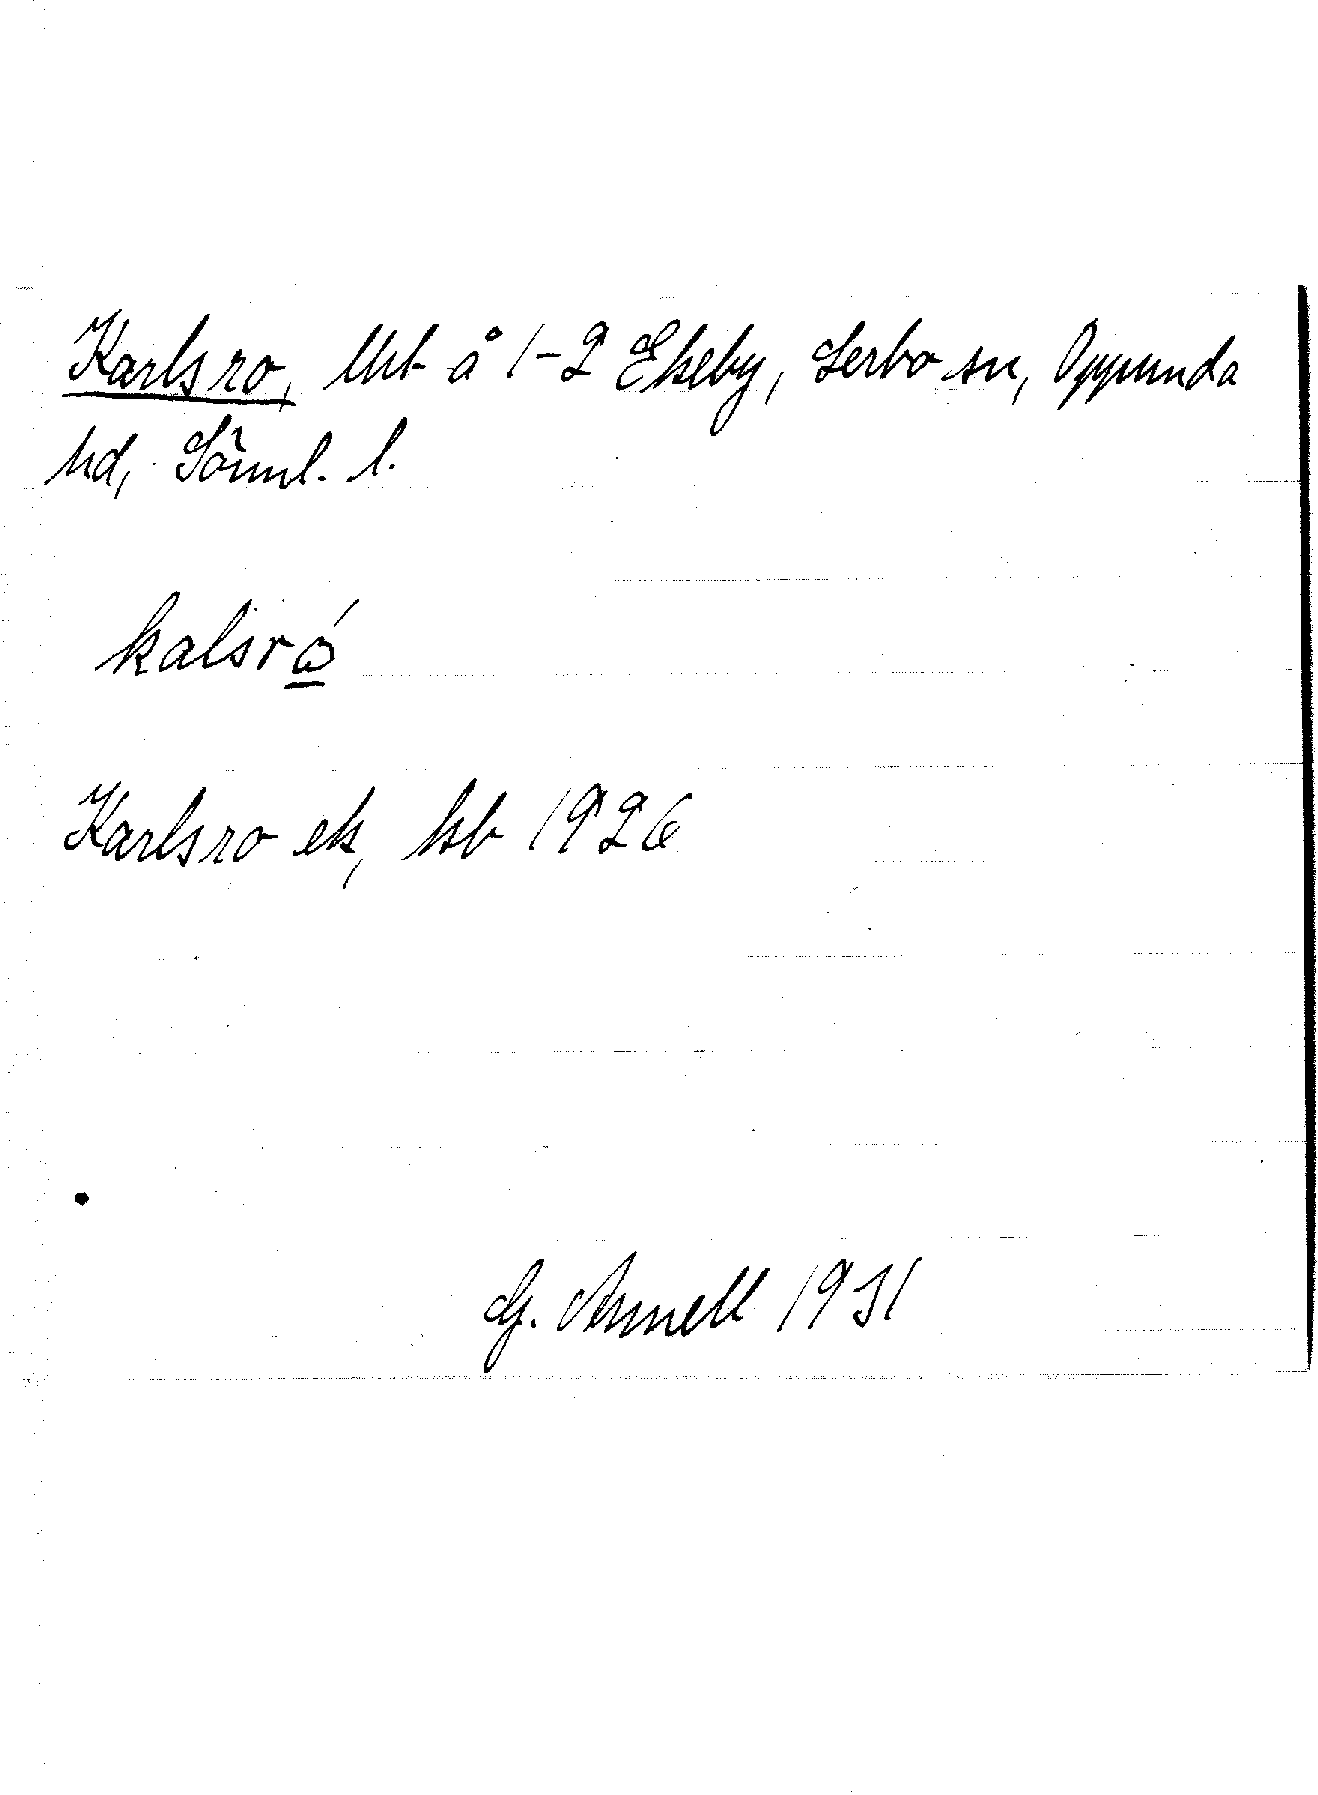 Karlsro, lht å 1-2 Ekeby, Lerbo sn, Oppunda
hd, Sörml. l.
kalsró
Karlsro ek, kb 1926
G. Arnell 1931